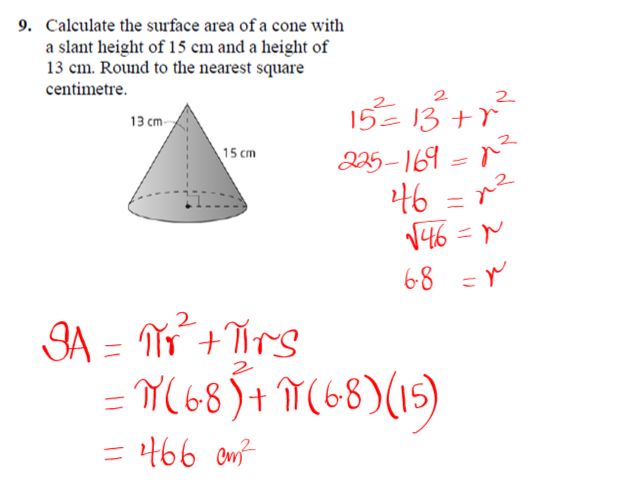 9. Calculate the surface area of a cone with
a slant height of 15 cm and a height of
13 cm. Round to the nearest square
centimetre.
13 cm
15 cm
15² = 13² + r²
225 - 169 = r²
46 = r²
√46 = r
6.8 = r
SA = πr² + πrs
= π(6.8)² + π(6.8)(15)
= 466 cm²